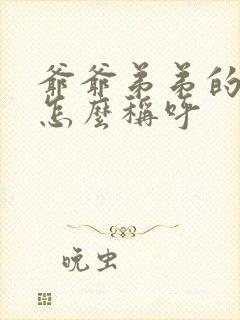 爺爺弟弟的
怎麼稱呼
晚虫